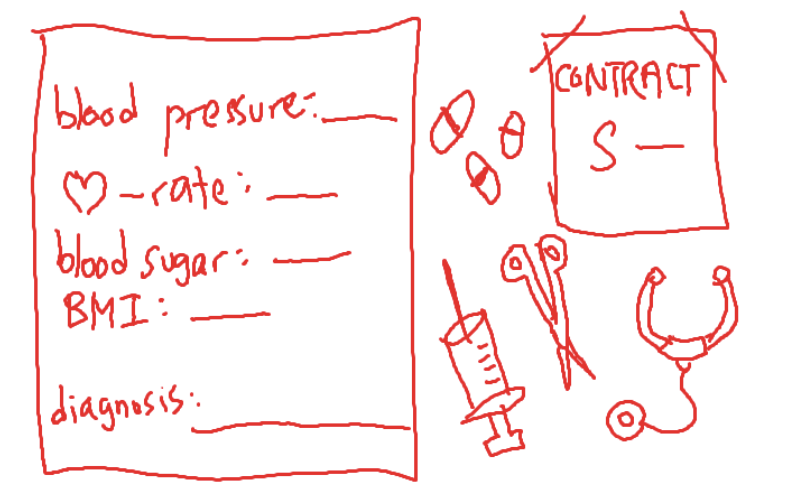 blood pressure: ____
♡-rate: ____
blood sugar: ____
BMI: ____
diagnosis: ________
CONTRACT
S —